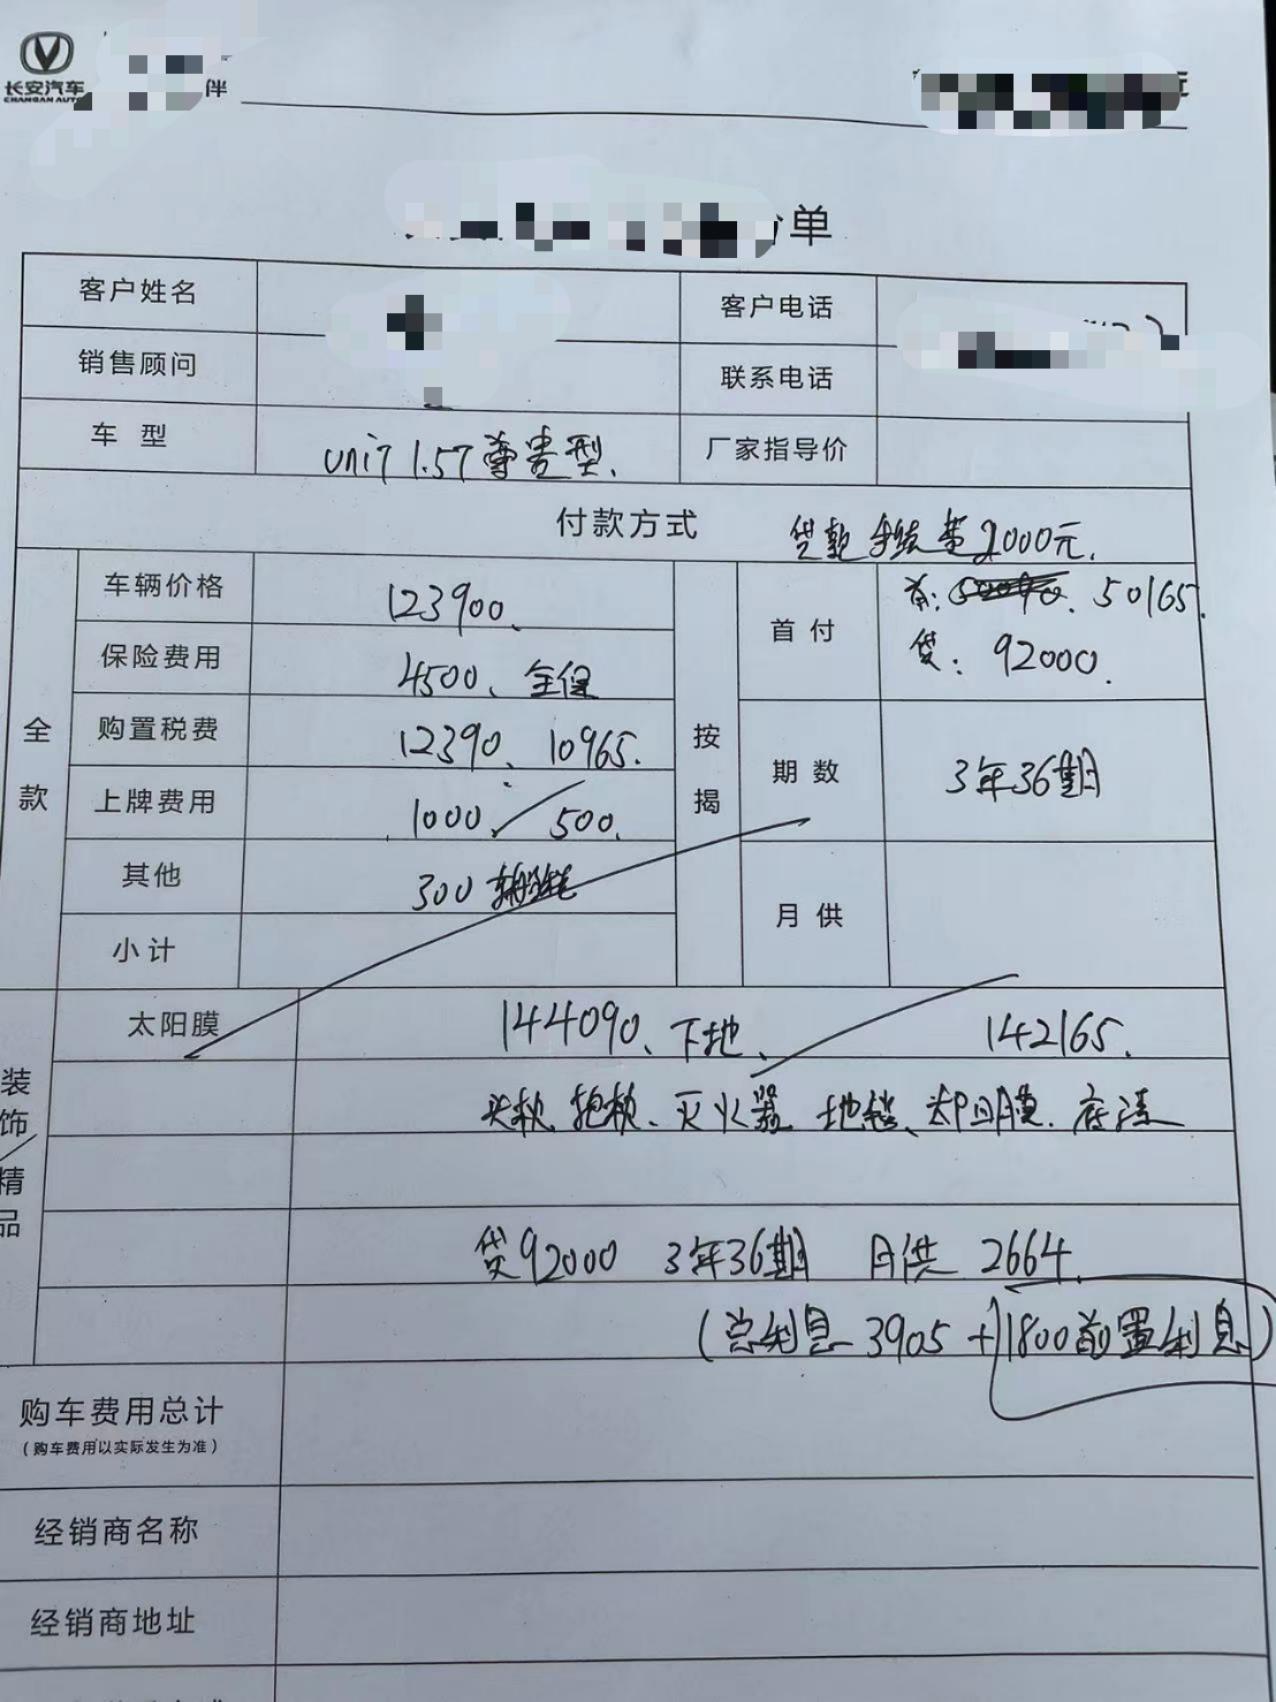 长安汽车
CHANGAN AUTO
伴
单
客户姓名
客户电话
销售顾问
联系电话
车型
uniT 1.5T尊贵型.
厂家指导价
付款方式
贷款手续费2000元.
全款
车辆价格
123900、
保险费用
4500、全保
购置税费
12390、10965.
上牌费用
1000 500.
其他
300
小计
按揭
首付
首: 50165.
贷: 92000.
期数
3年36期
月供
装饰/精品
太阳膜
144090、下地、 142165.
头枕、抱枕、灭火器 地毯、太阳膜. 底漆
贷92000 3年36期 月供 2664.
(总利息 3905 + 1800前置利息)
购车费用总计
(购车费用以实际发生为准)
经销商名称
经销商地址